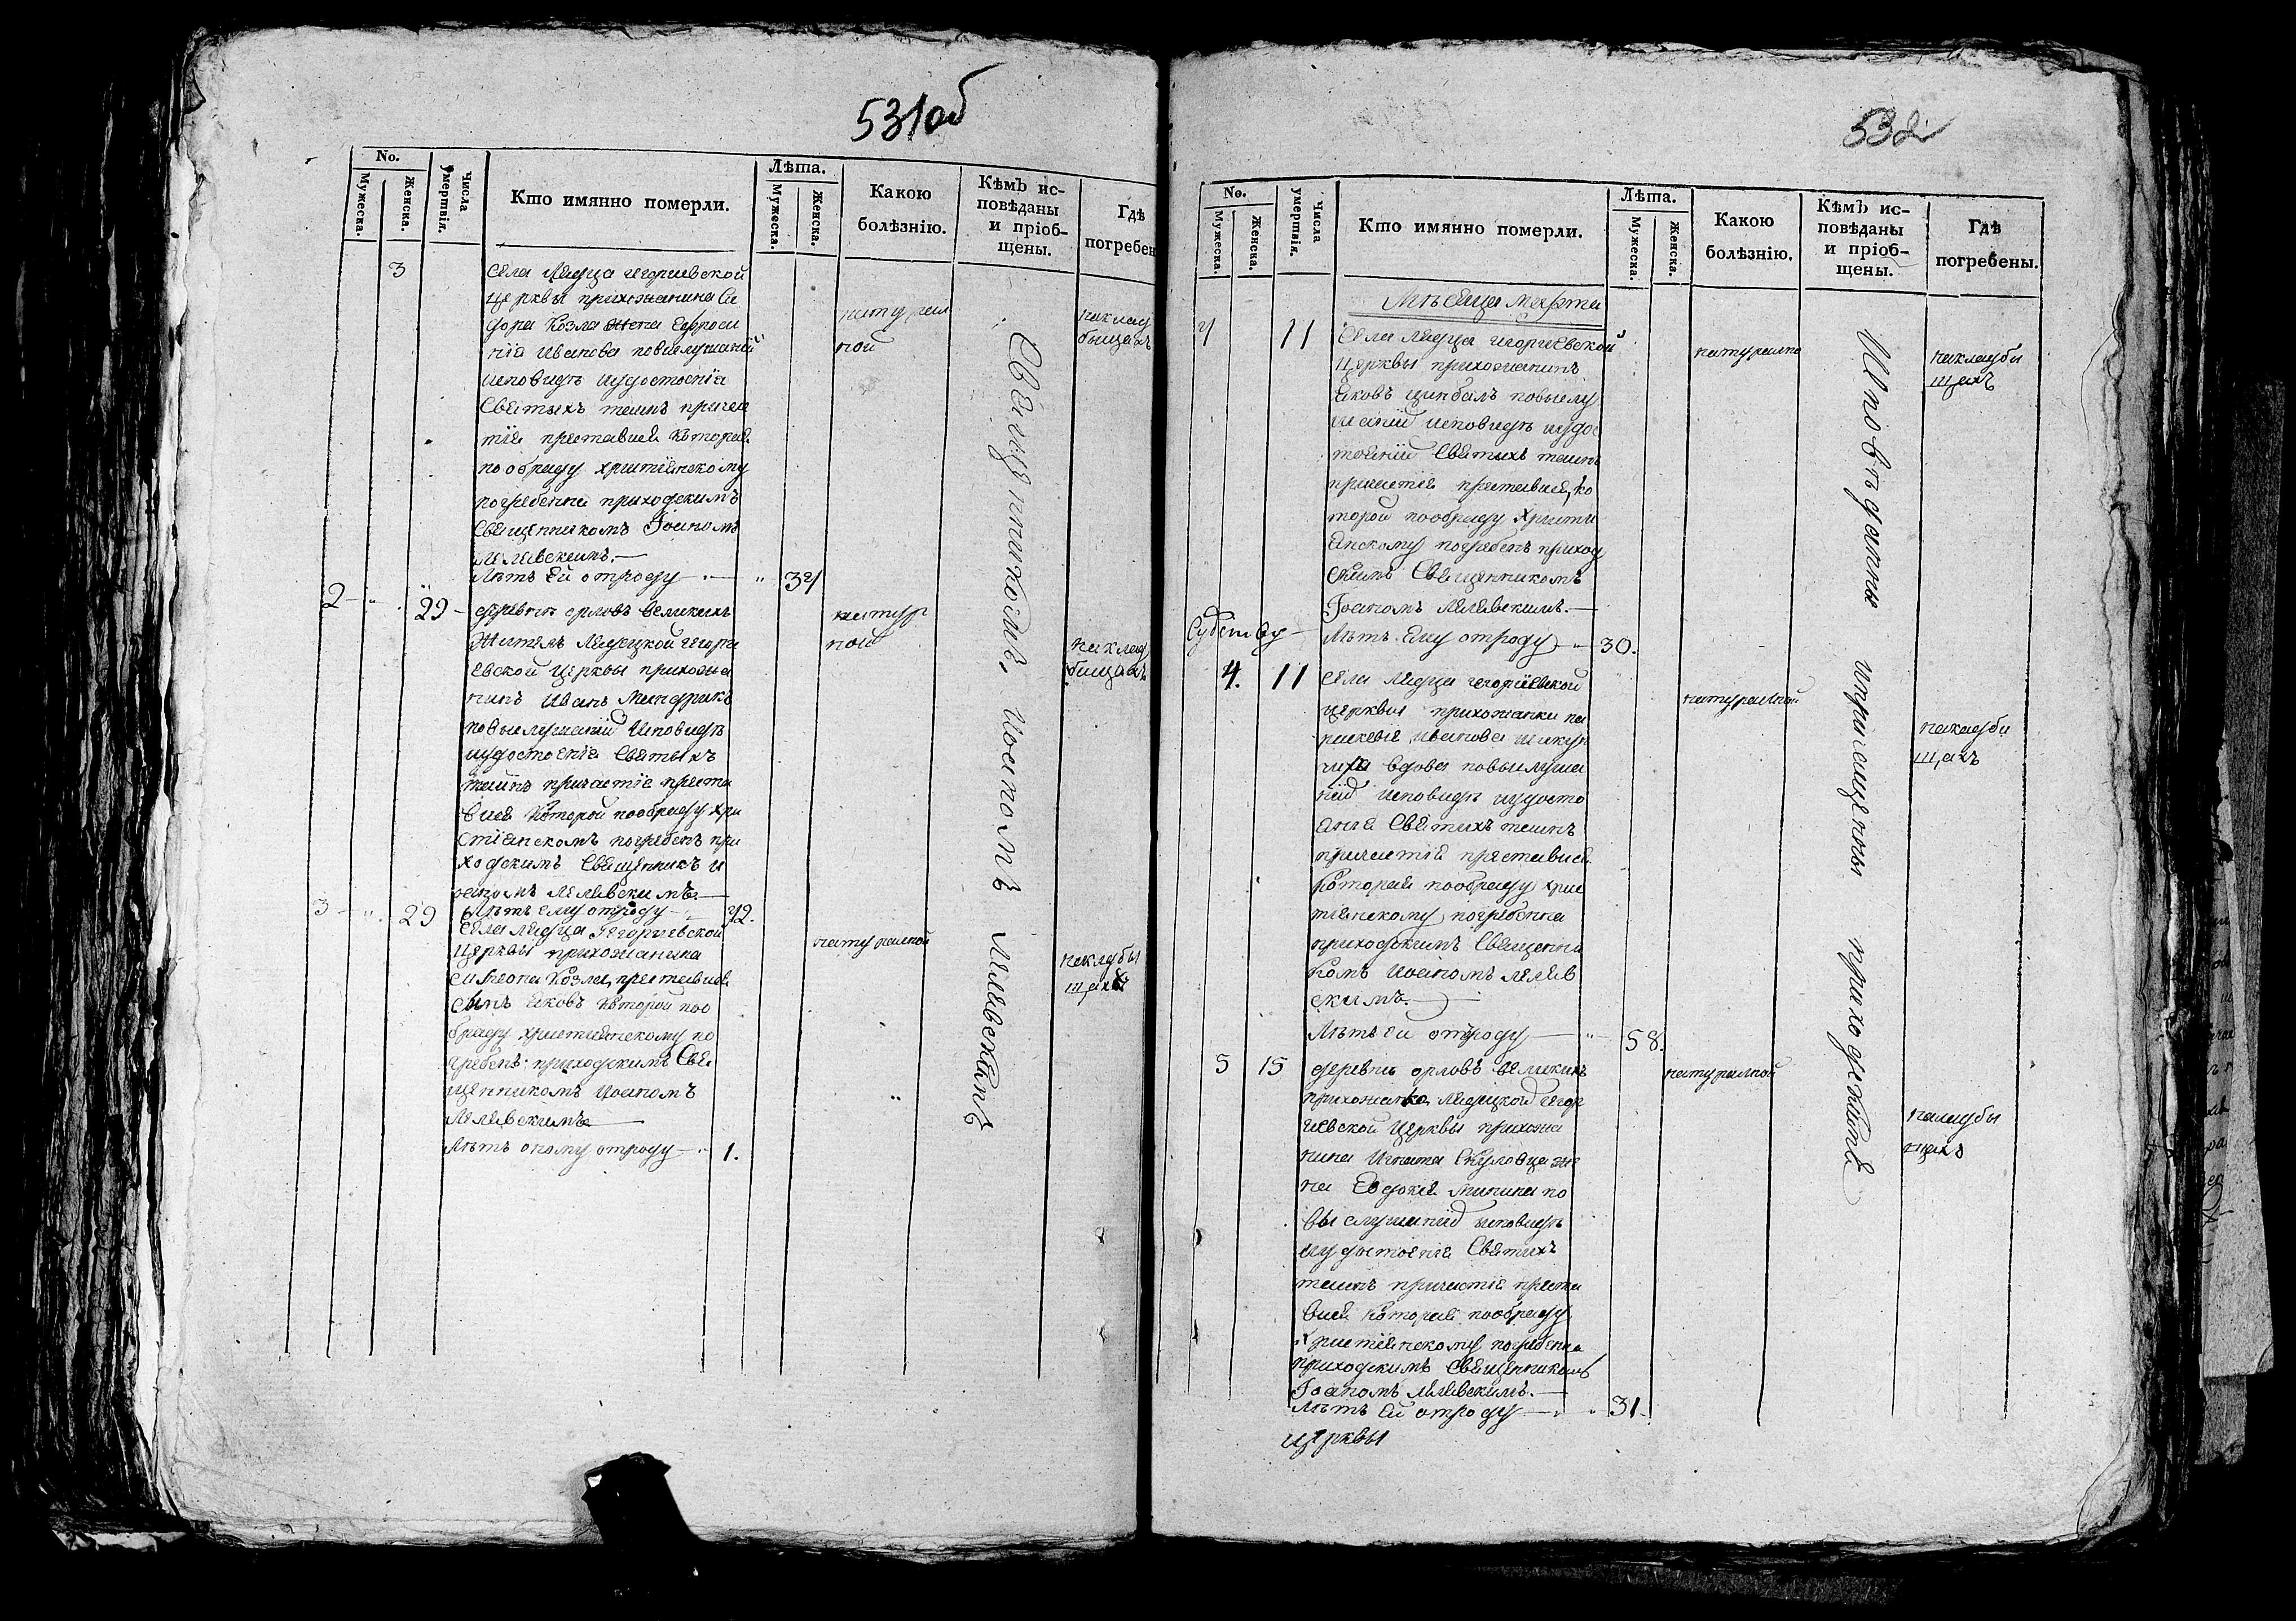 531об
No.
Мужеска.
Женска.
Числа умертвія.
Кто имянно померли.
Лѣта.
Мужеска.
Женска.
Какою болѣзнію.
Кѣмъ исповѣданы и пріобщены.
Гдѣ погребены
3
Села Лядца Георгиевской
церквы прихожанина Си
дора Козла жена Евфроси
ния Иванова
Святыхъ таинъ причас
тия преставися которая
по обряду християнскому
погребенна приходскимъ
Священникомъ Іоаномъ
Лѣтъ ей отроду — 34
натурал
ной
на клад
бищахъ
Священникомъ Иоаномъ
2 29
деревни орловъ великихъ
житель Лядецкой Георги
евской церквы прихожа
нинъ Иванъ Миндрикъ
Святыхъ
таинъ причастие преста
вися которой пообряду хри
стиянскомъ погребенъ при
ходскимъ Священникъ И
оаномъ
Лѣтъ ему отроду — 42.
натур
ной
на клад
бищахъ
3 29
Села Лядца Георгиевской
церквы прихожанина
Симеона Козла преставися
сынъ Яковъ которой поо
бряду християнскому по
гребенъ приходскимъ Свя
щенникомъ Иоаномъ
Лѣтъ оному отроду — 1.
натуралной
на кладбы
щахъ
532
No.
Мужеска.
Женска.
Числа умертвія.
Кто имянно померли.
Лѣта.
Мужеска.
Женска.
Какою болѣзнію.
Кѣмъ исповѣданы и пріобщены.
Гдѣ погребены.
Мѣсяца Марта
4 11
Села Лядца Георгиевской
церквы прихожанинъ
Яковъ Цинбалъ повыслу
шаний исповиди иудос
тоений Святихъ таинъ
причастия преставися, ко
торой пообряду Христи
янскому погребенъ приход
скимъ Священникомъ
Іоаномъ
Лѣтъ Ему отроду — 30.
натурално
накладби
щахъ
Исповѣданны ипричащенны приходскимъ
4. 11
Села Лядца Георгиевской
церквы прихожанка па
раскевия Иванова
вдова повыслуша
ний исповиди иудосто
Святихъ таинъ
причастия преставися
Которая пообряду хрис
тиянскому погребенна
приходскимъ Священни
комъ Иоаномъ
скимъ.
Лѣтъ ей отроду — 58.
натуралной
накладби
щахъ
5 15
деревни орловъ великихъ
прихожанка Лядецкой Геор
гиевской церквы прихожа
нина Игната Скуловца же
на Евдокия Минина по
выслушаний исповиди
иудостоения Святихъ
таинъ причастия преста
вися Которая пообряду
Християнскому погребенна
приходскимъ Священникомъ
Іоаномъ
Лѣтъ Ей отроду — 31.
натуралной
накладбы
щахъ
церквы